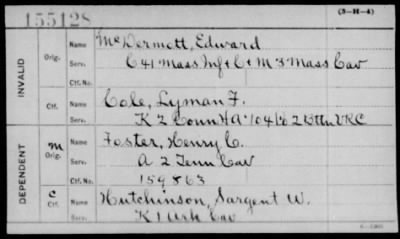 155128
(3-H-4)
INVALID
Orig.
Name McDermott, Edward
Serv. C 41 Mass Inf & C & M 3 Mass Cav
Ctf. No.
Ctf.
Name Cole, Lyman F.
Serv. K 2 Conn HA 104 Co 2 Battn VRC
DEPENDENT
M
Orig.
Name Foster, Henry C.
Serv. A 2 Tenn Cav
Ctf. No. 159863
C
Ctf.
Name Hutchinson, Sargent W.
Serv. K 1 Ark Cav